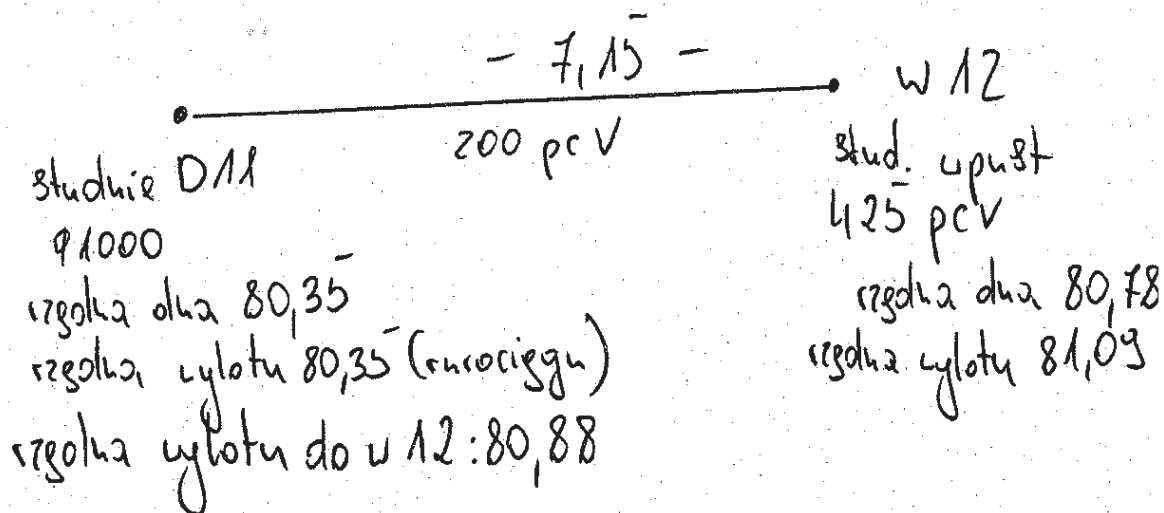 - 7,15 -
200 pcV
w 12
studnie D11
φ1000
rzędna dna 80,35
rzędna wylotu 80,35 (rurociągu)
rzędna wylotu do w 12: 80,88
stud. wpust
425 pcV
rzędna dna 80,78
rzędna wylotu 81,09